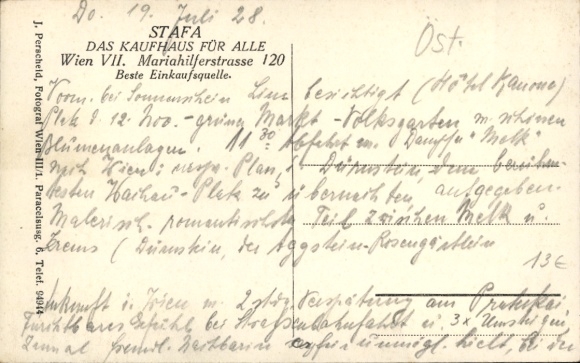 Do. 19. Juli 28.
STAFA
DAS KAUFHAUS FÜR ALLE
Wien VII. Mariahilferstrasse 120
Beste Einkaufsquelle.
Öst.
J. Perscheid, Fotograf Wien III/1. Paracelsusg. 6, Telef. 94944
Vorm. bei Sonnenschein Linz besichtigt (Hôtel Kanone)
Platz d. 12. Nov. - grüner Markt - Volksgarten m. schönen
Blumenanlagen. 11 30 Abfahrt m. Dampfer "Melk"
nach Wien; Plan, i. Dürnstein dem berühm-
testen Wachau-Platz zu übernachten, aufgegeben.
Malerisch. romantischster Teil zwischen Melk u.
Krems (Dürnstein, Aggstein-Rosengärtlein
13€
Ankunft i. Wien m. 2 Verspätung am Praterkai,
Furchtbares Gefühl bei Strassenbahnfahrt u. 3x Umsteigen,
zumal fremdl. hielt bei der